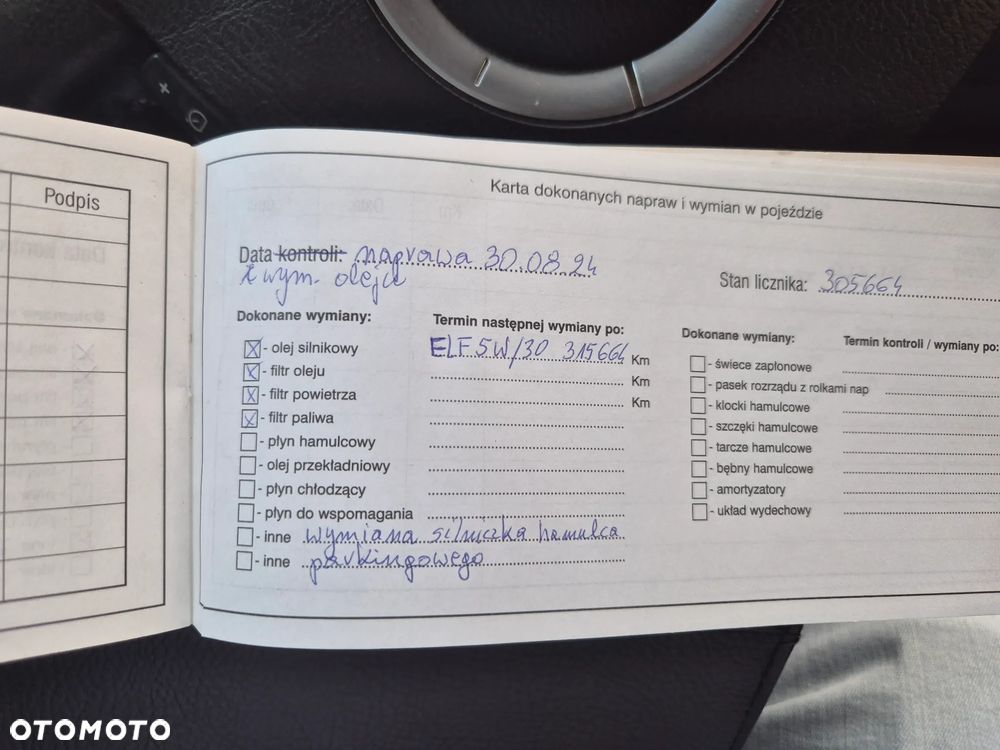 Podpis
Karta dokonanych napraw i wymian w pojeździe
Data kontroli: naprawa 30.08.24
z wym. oleju
Stan licznika: 305664
Dokonane wymiany:
Termin następnej wymiany po:
- olej silnikowy ELF 5W/30 315664 Km
- filtr oleju Km
- filtr powietrza Km
- filtr paliwa
- płyn hamulcowy
- olej przekładniowy
- płyn chłodzący
- płyn do wspomagania
- inne wymiana silniczka hamulca
- inne parkingowego
Dokonane wymiany:
Termin kontroli / wymiany po:
- świece zapłonowe
- pasek rozrządu z rolkami nap
- klocki hamulcowe
- szczęki hamulcowe
- tarcze hamulcowe
- bębny hamulcowe
- amortyzatory
- układ wydechowy
OTOMOTO